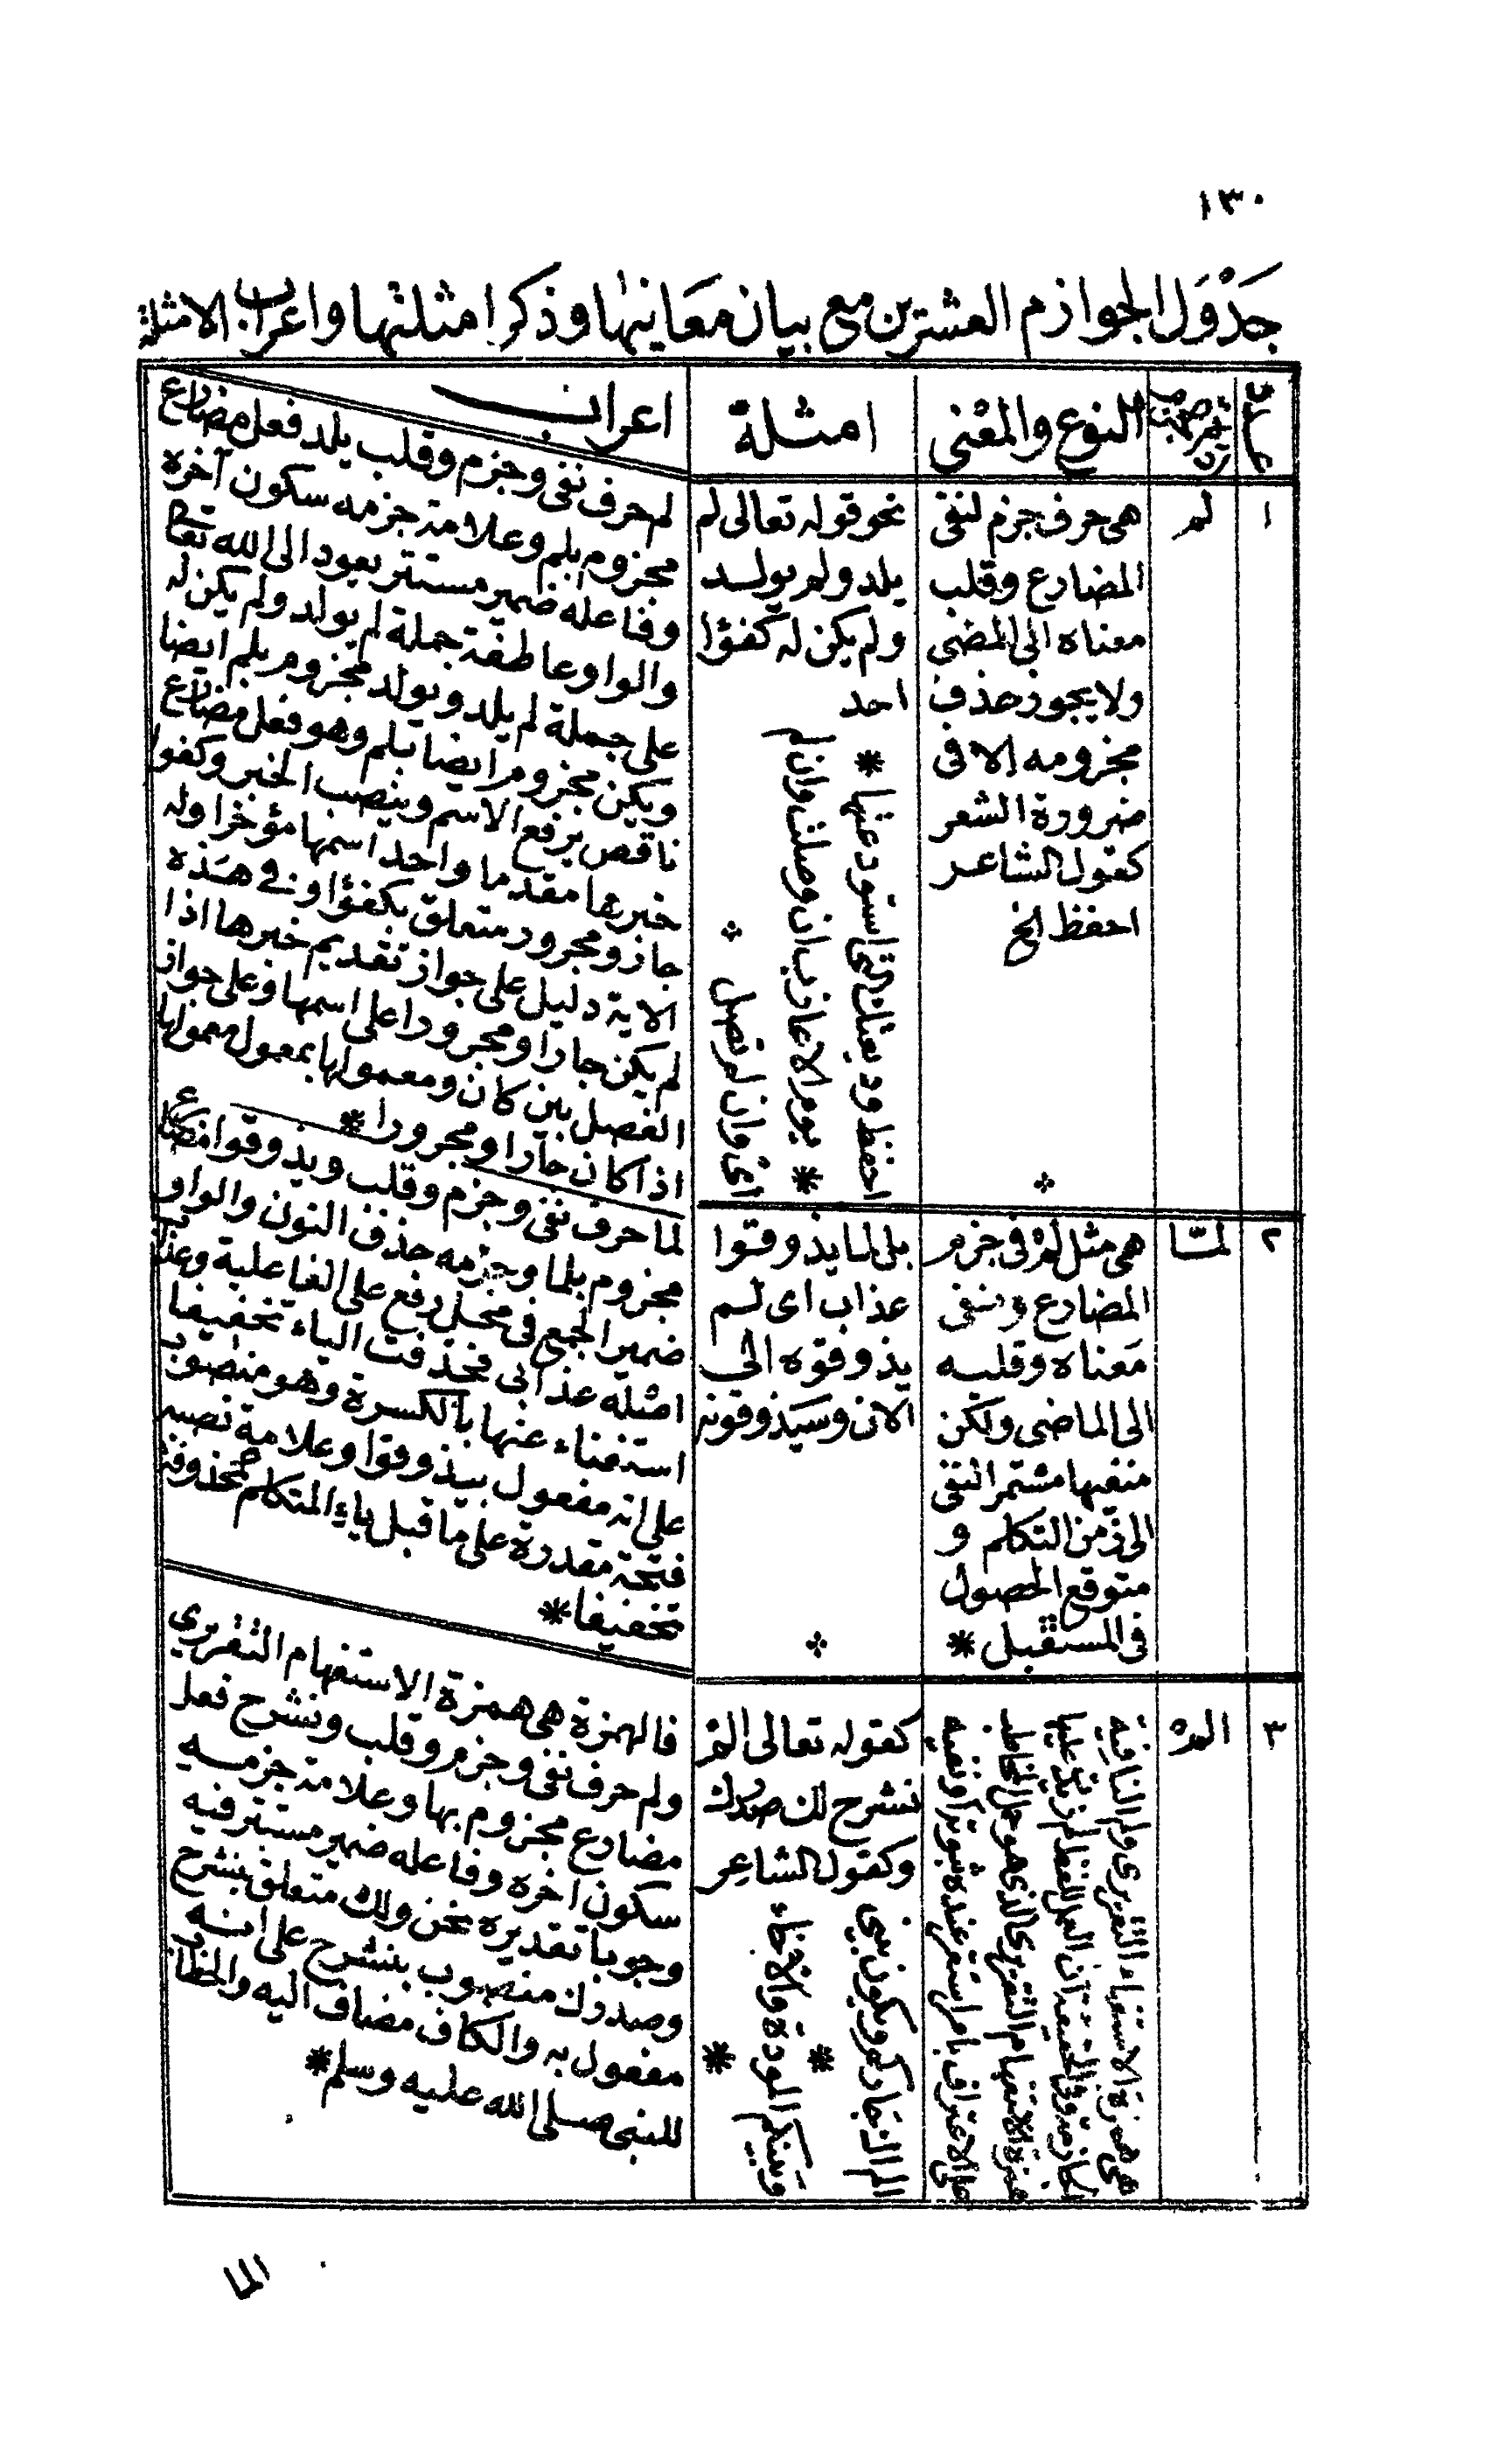 ١٣٠
جَدْوَل الجوازم العشترين مع بيان مَعَانيها وذكر امثلتها واعراب الامثلة
عدد
النوع والمعْنى
امثلة
اعراب
١
لم
هى حرف جزم لنفى
المضارع وقلب
معناه الى المضى
ولا يجوز حذف
مجزومه الا فى
ضرورة الشعر
كقول الشاعر
احفظ الخ
نحو قوله تعالى لم
يلد ولم يولد
ولم يكن له كفؤا
احد
احفظ وديعتك التى استودعتها *
يوم الاعازب ان وصلت وان لم *
اىْ وان لم تصل
لم حرف نفى وجزم وقلب يلد فعل مضارع
مجزوم بلم وعلامة جزمه سكون آخره
وفاعله ضمير مستتر يعود الى الله تعا
والواو عاطفة جملة لم يولد ولم يكن له
على جملة لم يلد ويولد مجزوم بلم ايضا
ويكن مجزوم ايضا بلم وهو فعل مضارع
ناقص يرفع الاسم وينصب الخبر وكفوا
خبرها مقدما واحد اسمها مؤخرا وله
جار ومجرور متعلق بكفؤا وفى هذه
الاية دليل على جواز تقديم خبرها اذا
لم يكن جارا ومجرورا على اسمها وعلى جواز
الفصل بين كان ومعمولها بمعمول معمولها
اذا كان جارا ومجرورا *
٢
لمّا
هى مثل لمْ فى جزم
المضارع ونفى
مَعناه وقلبه
الى الماضى ولكن
منفيها مستمر النفى
الى زمن التكلم و
متوقع الحصول
فى المستقبل *
بلى لما يذوقوا
عذاب اى لم
يذوقوه الى
الان وسيذوقونه
لما حرف نفى وجزم وقلب ويذوقوا مضارع
مجزوم بلما وجزمه حذف النون والواو
ضمير الجمع فى محل رفع على الفاعلية وعذاب
اصله عذابى فحذفت الياء تخفيفا
استغناء عنها بالكسرة وهو منصوب
على انه مفعول بيذوقوا وعلامة نصبه
فتحة مقدرة على ما قبل ياء المتكلم المحذوفة
تخفيفا *
٣
المْ
هى همزة الاستفهام التقريرى ولم النافية
الجازمة وفى الحقيقة ان العمل للفظ لم زيدت عليها
همزة الاستفهام التقريرى الذى هو حمل المخاطب
على الاعتراف بامر استقر عنده ثبوته او نفيه
كقوله تعالى المْ
نشرح لك صدرك
وكقول الشاعر
الم اك جاركم ويكون بينى *
وبينكم المودة والاخاء *
فالهمزة هى همزة الاستفهام التقريرى
ولم حرف نفى وجزم وقلب ونشرح فعل
مضارع مجزوم بها وعلامة جزمه
سكون اخره وفاعله ضمير مستتر فيه
وجوبا تقديره نحن ولك متعلق بنشرح
وصدرك منصوب بنشرح على انه
مفعول به والكاف مضاف اليه والخطاب
للنبى صلى الله عليه وسلم *
الما